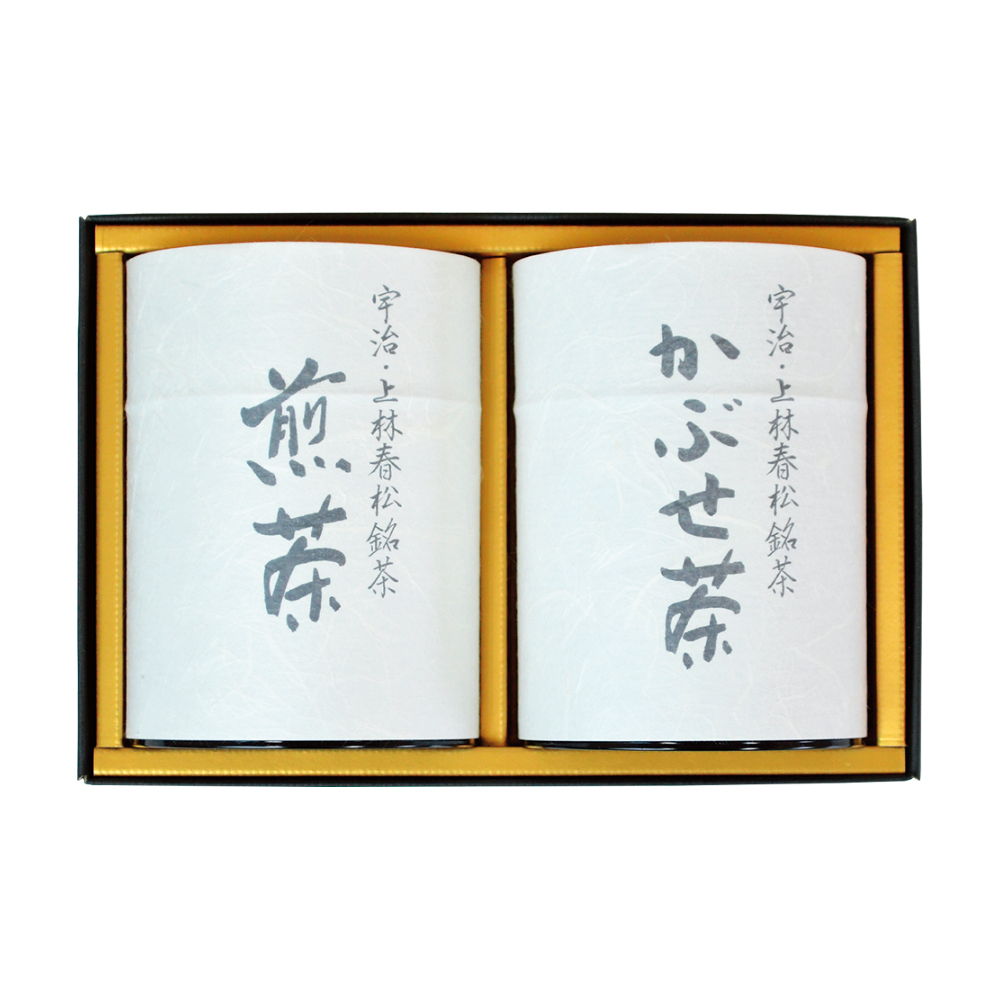 宇治・上林春松銘茶
煎茶
宇治・上林春松銘茶
かぶせ茶